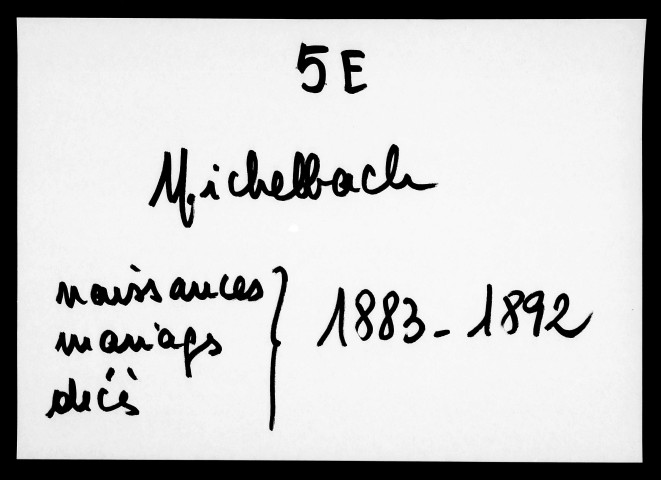 5 E
Michelbach
naissances
mariages
décès
1883-1892